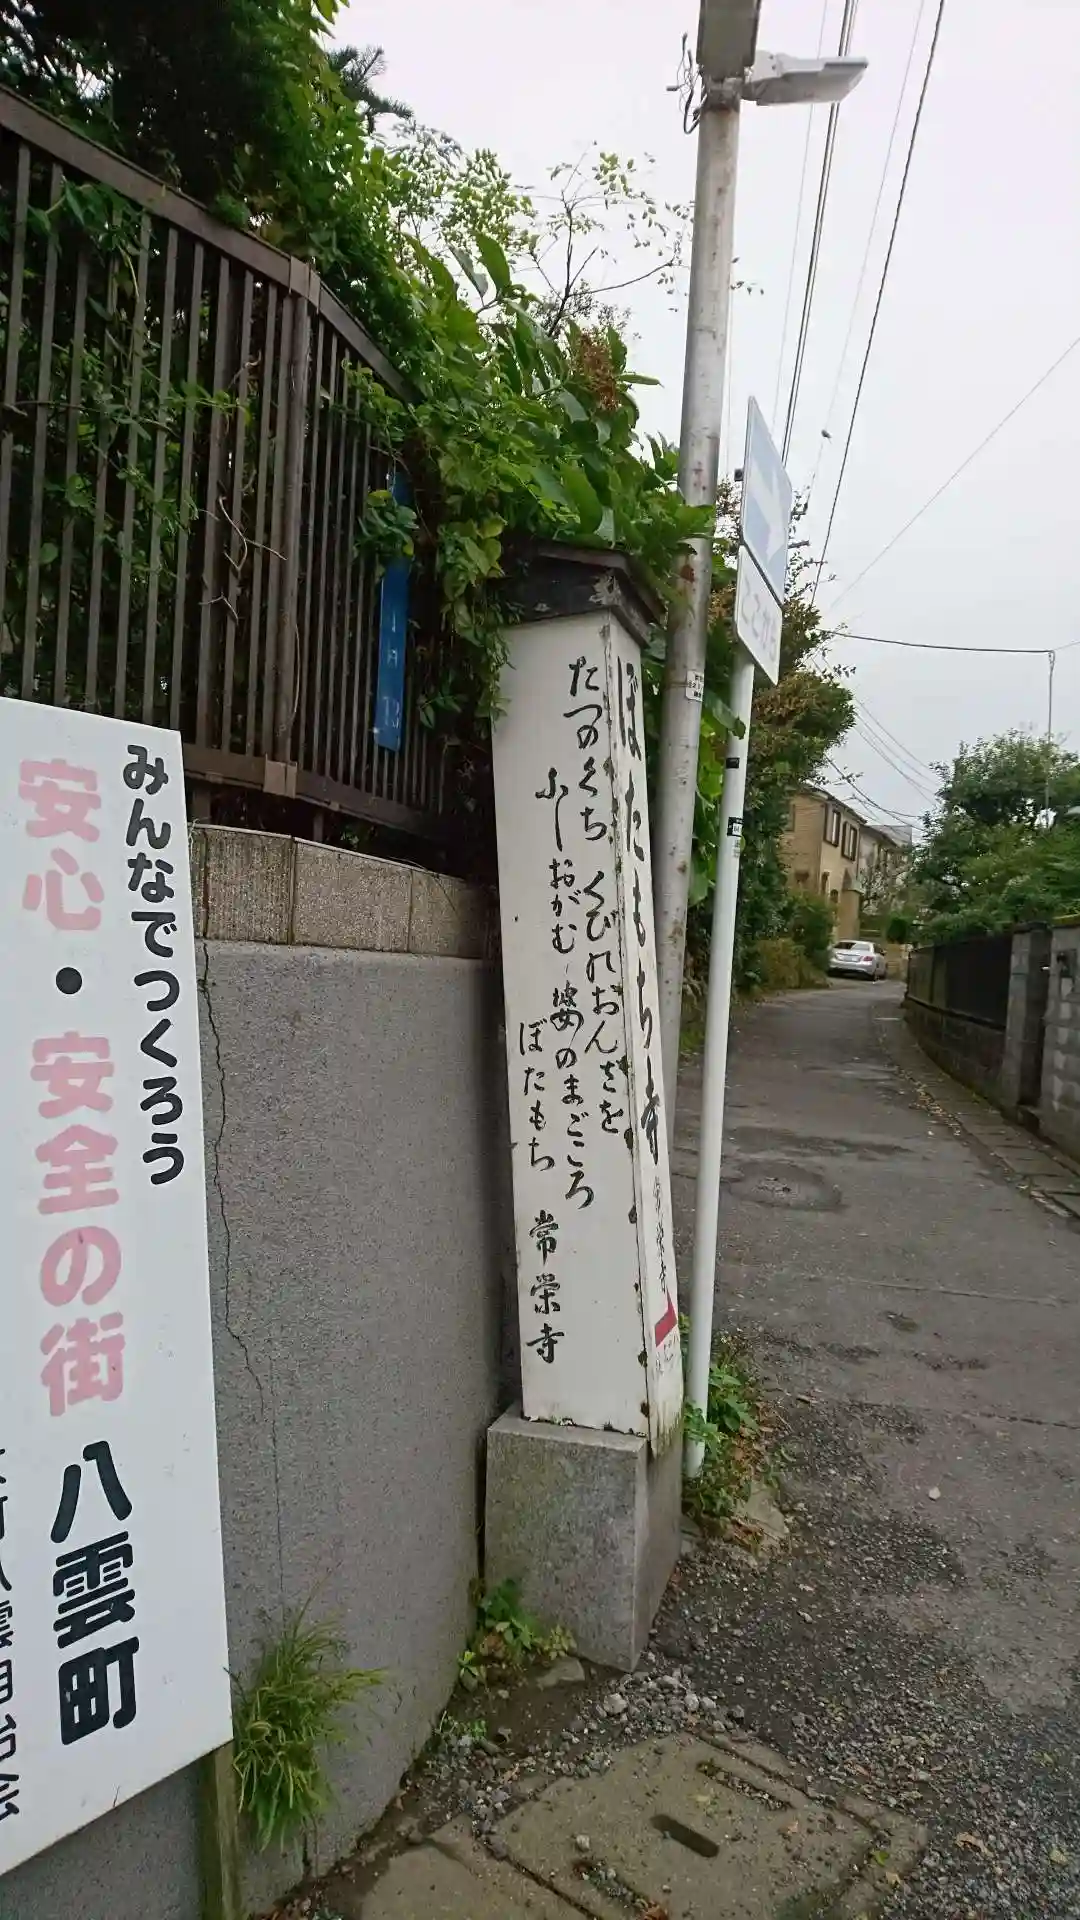 みんなでつくろう
安心・安全の街 八雲町
ぼたもち寺
常栄寺
たつのくち くびれおんざを
ふしおがむ 婆のまごころ
ぼたもち 常栄寺
ここから